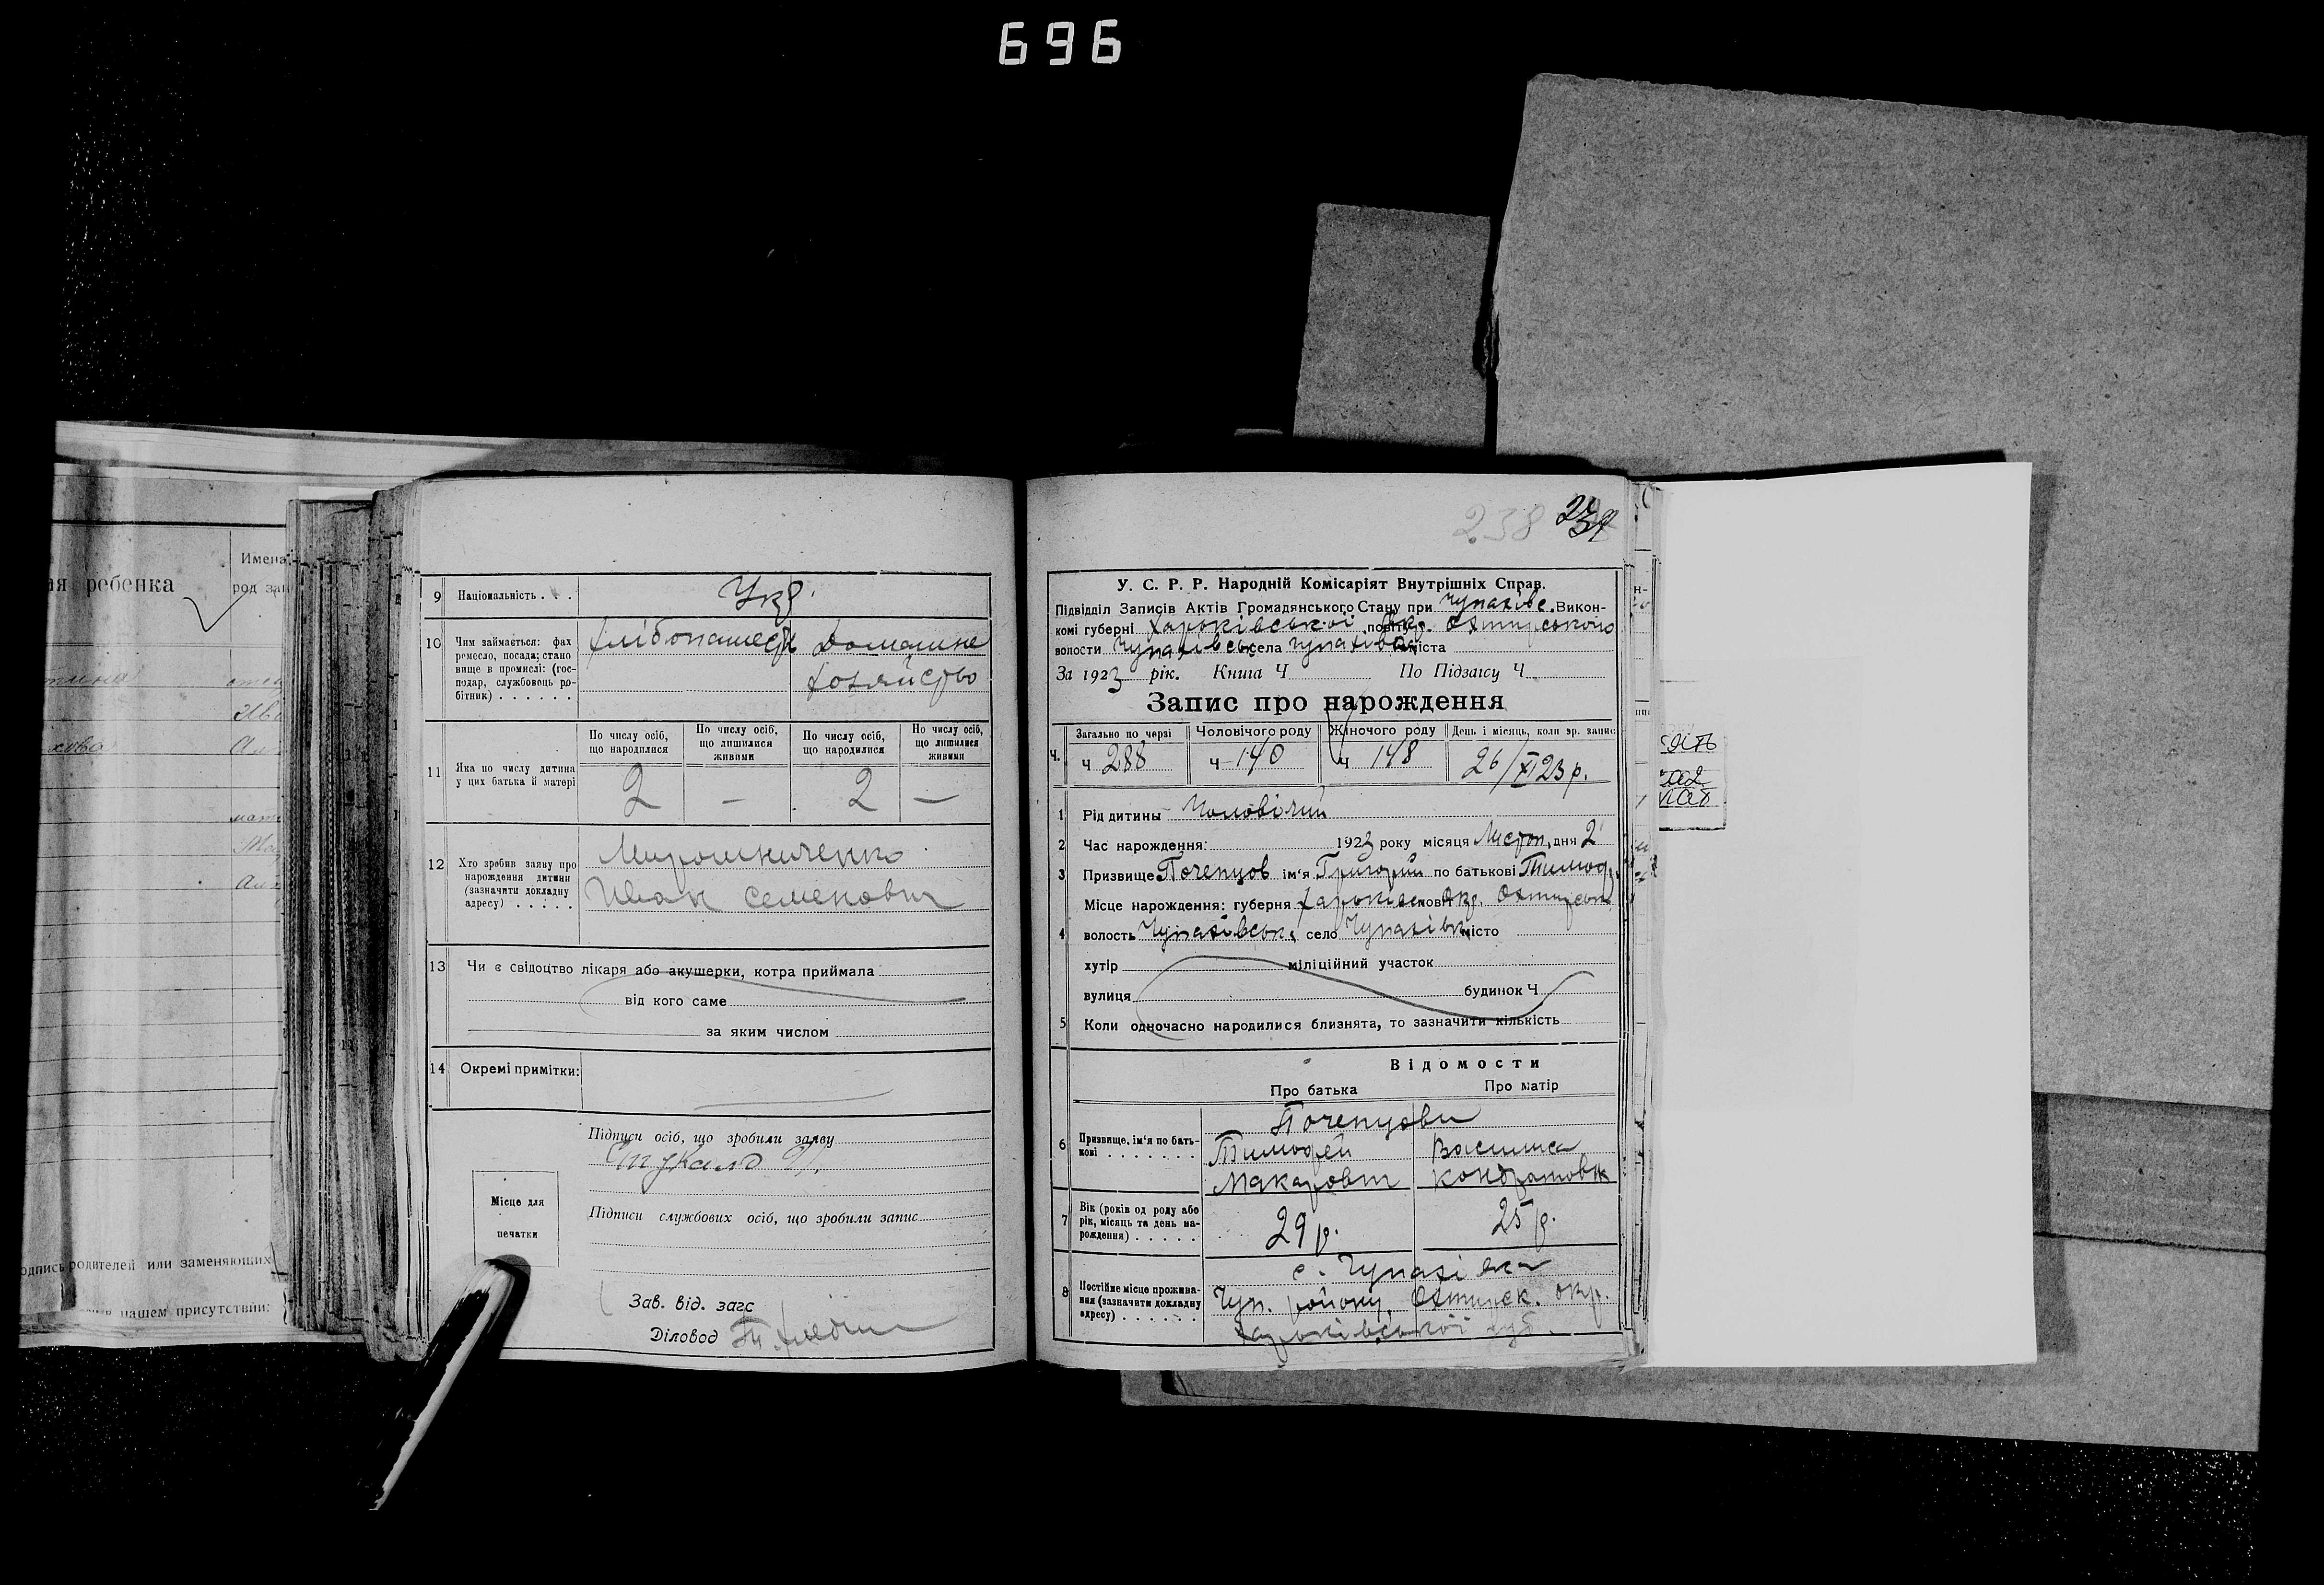 696
ая ребенка
Имена
род зан
одпись родителей или заменяющих
нашем присутствии:
9 Національність . . . Укр.
10 Чим займається: фах
ремесло, посада; стано
вище в промислі: (гос-
подар, службовець ро-
бітник) . . . . . .
Домашне
хозяйство
11 Яка по числу дитина
у цих батька й матері
По числу осіб,
що народилися
По числу осіб,
що лишилися
живими
По числу осіб,
що народилися
По числу осіб,
що лишилися
живими
2 — 2 —
12 Хто зробив заяву про
нарождення дитини
(зазначити докладну
адресу) . . . . .
Мирошниченко
Иван Семенович
13 Чи є свідоцтво лікаря або акушерки, котра приймала
від кого саме
за яким числом
14 Окремі примітки:
Підписи осіб, що зробили заяву
Місце для
печатки
Підписи службових осіб, що зробили запис
Зав. від. загс
Діловод
238
У. С. Р. Р. Народній Комісаріят Внутрішніх Справ.
Підвідділ Записів Актів Громадянського Стану при Чупахівс. Викон-
комі губерні Харьківської повіту Окр. Охтирського
волости Чупахівськ села Чупахівка міста
За 1923 рік. Книга Ч По Підзапису Ч.
Запис про нарождення
Ч.
Загально по черзі
ч 288
Чоловічого роду
ч 140
Жіночого роду
ч 148
День і місяць, коли зр. запис
26/XI 23 р.
1 Рід дитины Чоловічий
2 Час нарождення: 1923 року місяця Листоп. дня 2
3 Призвище Почепцов ім'я Григорий по батькові Тимоф.
4 Місце нарождення: губерня Харьківск повіт Окр. Охтирськ
волость Чупахівськ. село Чупахівк місто
хутір міліційний участок
вулиця будинок Ч
5 Коли одночасно народилися близнята, то зазначити кількість
Відомости
Про батька Про матір
6 Призвище, ім'я по бать-
кові . . . . . . .
Почепцови
Тимофей
Макарович
Василиса
Кондратовн
7 Вік (років од роду або
рік, місяць та день на-
рождення) . . . . .
29 р.
25 р.
8 Постійне місце прожива-
ння (зазначити докладну
адресу) . . . . . .
с. Чупахівка
Чуп. району, Охтирск. окр.
Харьківської губ.